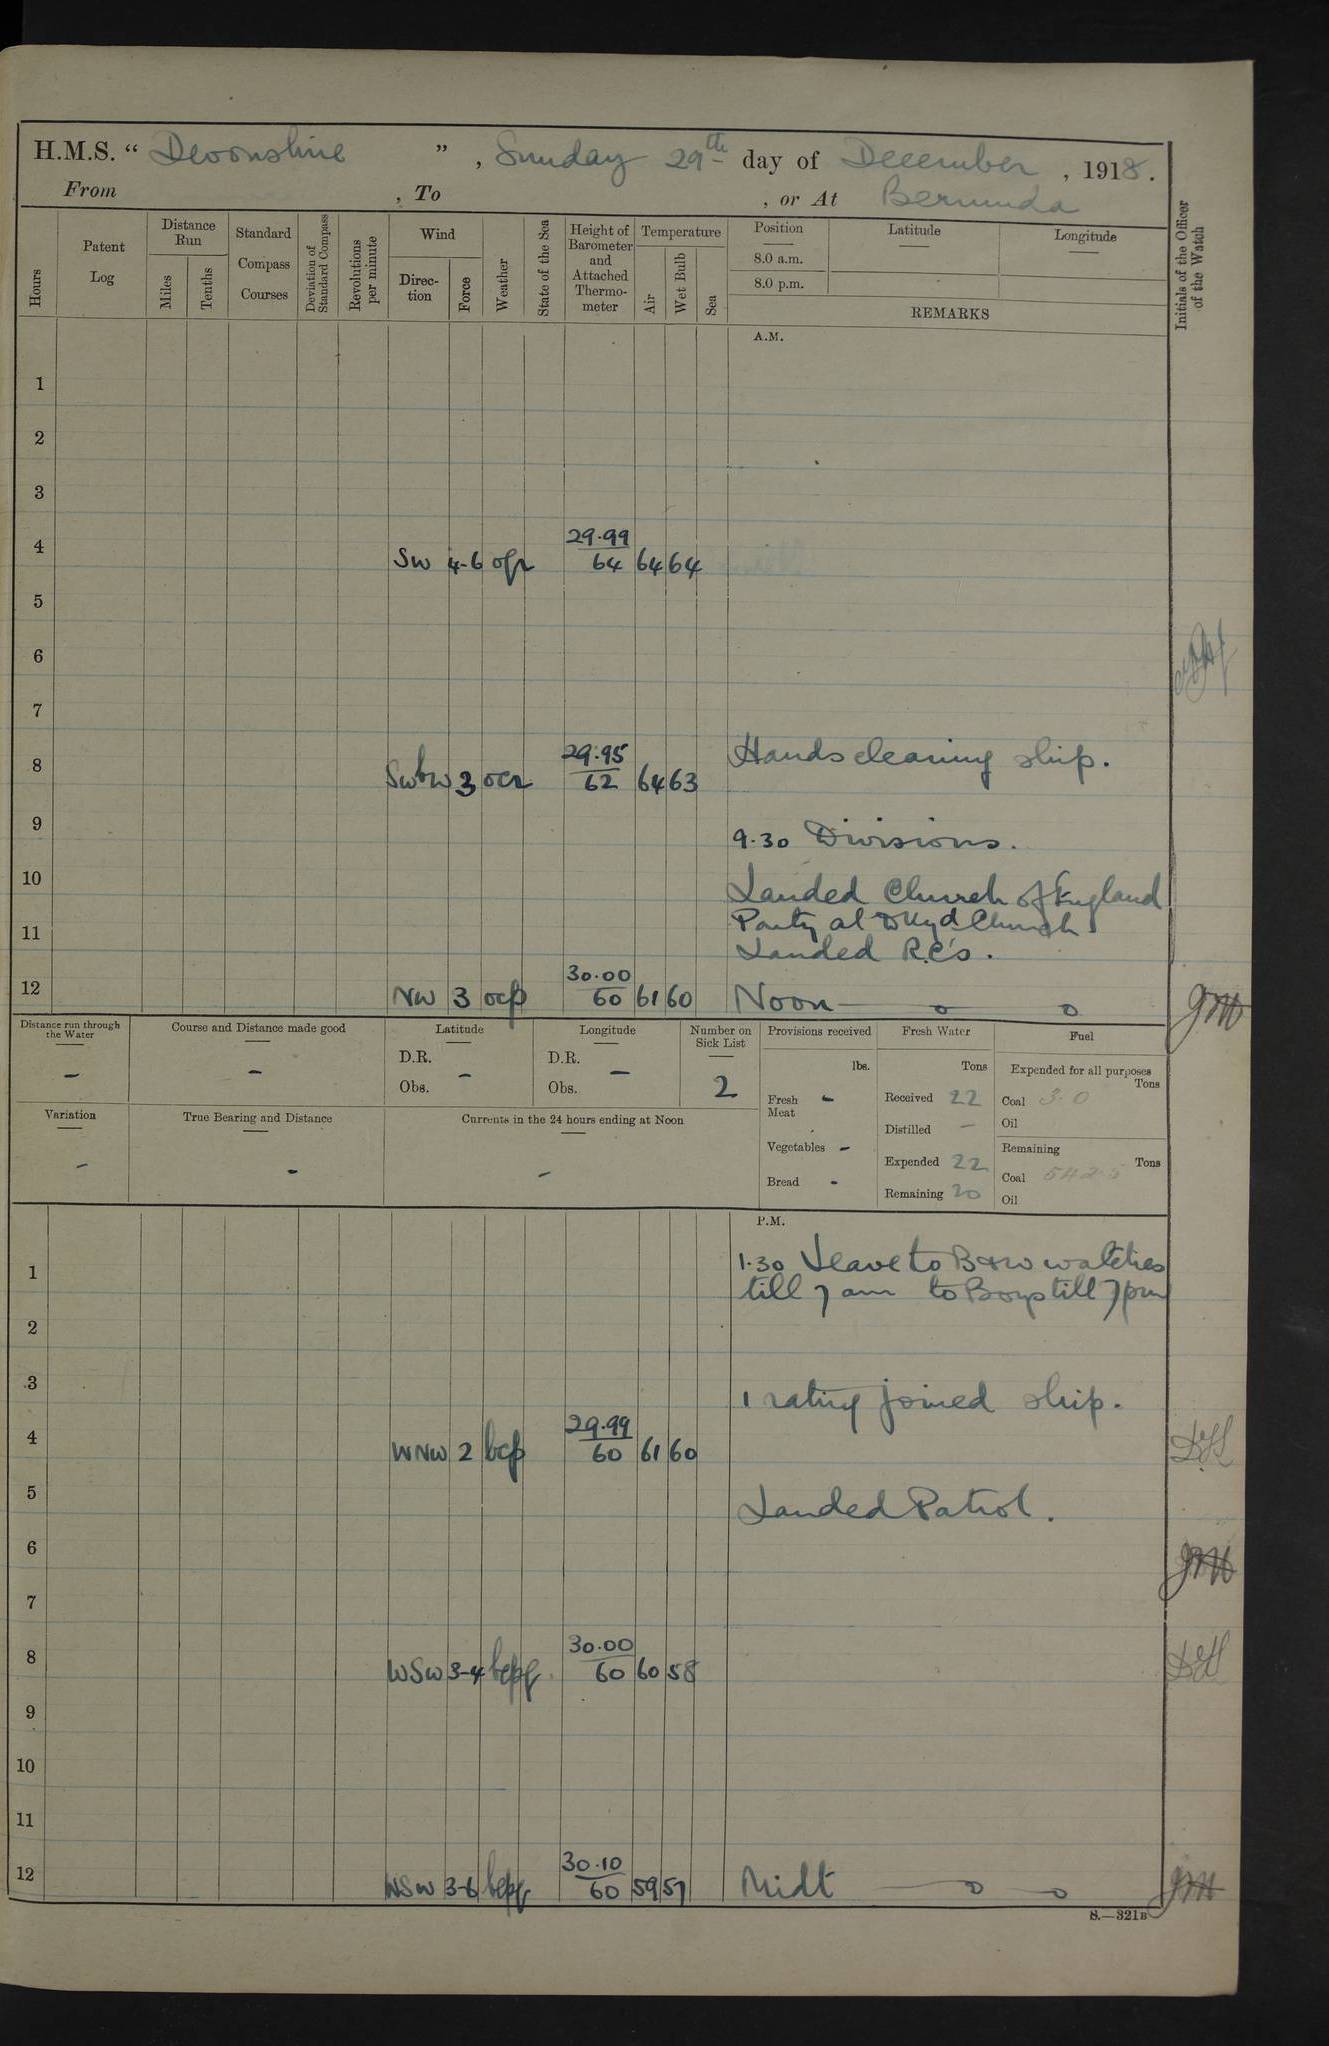 H.M.S. “ Devonshire ” , Sunday 29th day of December , 1918 .
From , To , or At Bermuda
Hours
Patent Log
Distance Run
Miles
Tenths
Standard Compass Courses
Deviation of Standard Compass
Revolutions per minute
Wind
Direc-tion
Force
Weather
State of the Sea
Height of Barometer and Attached Thermo-meter
Temperature
Air
Wet Bulb
Sea
Position
8.0 a.m.
8.0 p.m.
Latitude
Longitude
REMARKS
Initials of the Officer of the Watch
A.M.
1
2
3
4 SW 4-6 29.99 64 64 64
5
6
7
8 SWbW 3 ocr 29.95 62 64 63 Hands cleaning ship.
9 9.30 Divisions.
10 Landed Church of England
Party at Dkyd Church
11 Landed R.C's.
12 NW 3 ocp 30.00 60 61 60 Noon
Distance run through the Water -
Course and Distance made good -
Latitude
D.R.
Obs. -
Longitude
D.R.
Obs. -
Number on Sick List
2
Provisions received
lbs.
Fresh Meat -
Vegetables -
Bread -
Fresh Water
Tons
Received 22
Distilled -
Expended 22
Remaining 20
Fuel
Expended for all purposes
Tons
Coal 3.0
Oil
Remaining
Tons
Coal 542.5
Oil
Variation -
True Bearing and Distance -
Currents in the 24 hours ending at Noon -
P.M.
1 1.30 Leave to B & W watches
till 7 am to Boys till 7 pm
2
3 1 rating joined ship.
4 WNW 2 bcp 29.99 60 61 60
5 Landed Patrol.
6
7
8 WSW 3-4 bcpq 30.00 60 60 58
9
10
11
12 WSW 3-6 bcpq 30.10 60 59 57 Midt
S.—321B